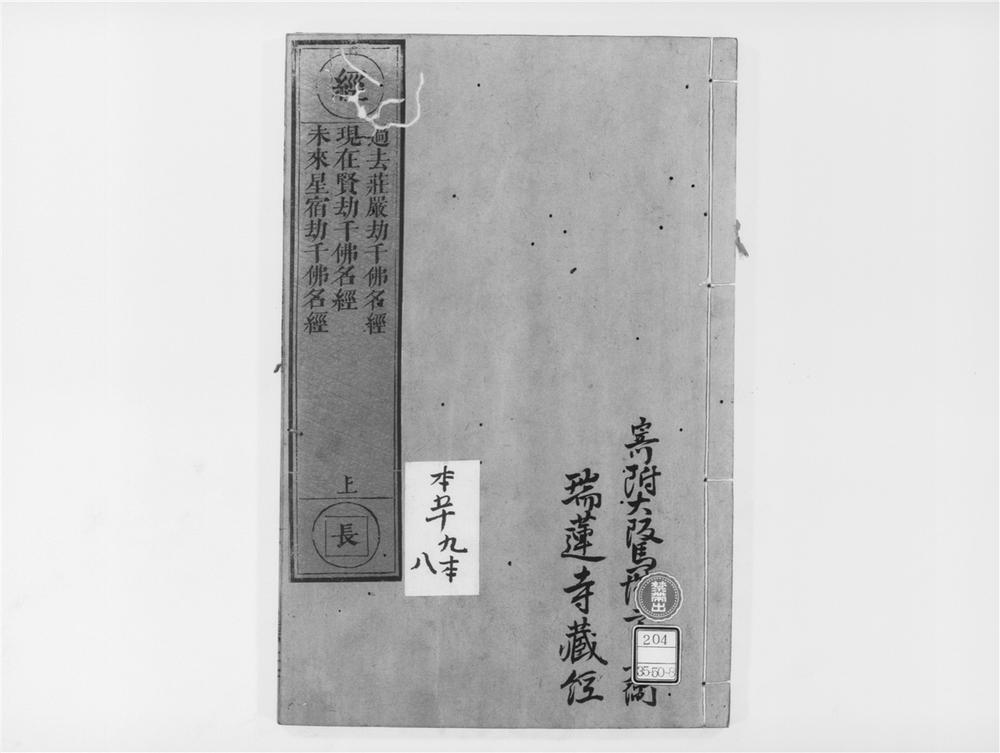 經
過去莊嚴劫千佛名經
現在賢劫千佛名經
未來星宿劫千佛名經
上
長
本五十九本
八
寄附大阪馬
瑞蓮寺藏經
禁帶出
204
35-50-8